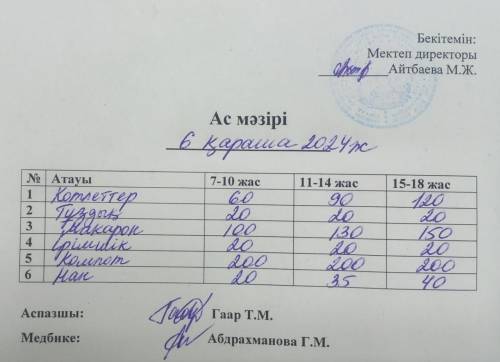 Бекітемін:
Мектеп директоры
Айтбаева М.Ж.
Ас мәзірі
6 қараша 2024ж
№ Атауы 7-10 жас 11-14 жас 15-18 жас
1 Котлеттер 60 90 120
2 Тұздық 20 20 20
3 Макарон 100 130 150
4 Ірімшік 20 20 20
5 Компот 200 200 200
6 Нан 20 35 40
Аспазшы: Гаар Т.М.
Медбике: Абдрахманова Г.М.